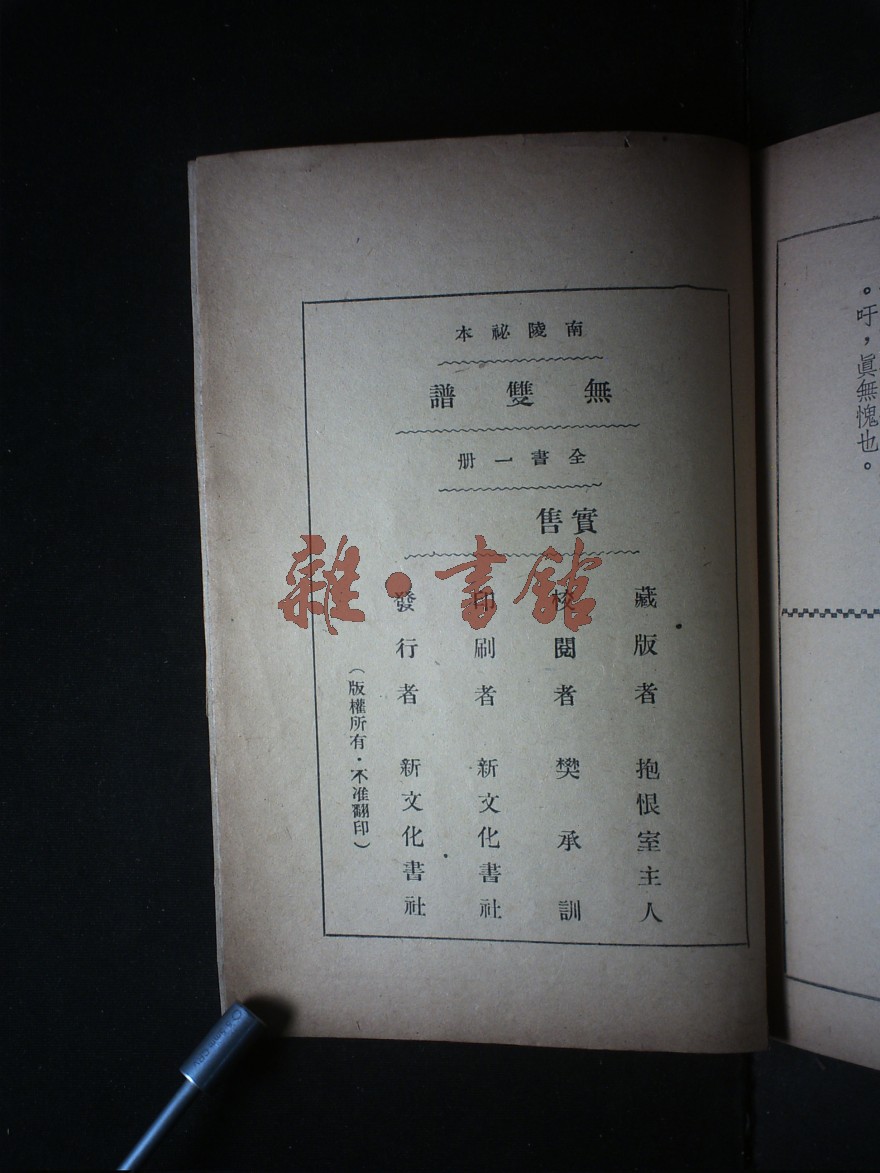 南陵祕本
無雙譜
全書一册
實售
藏版者 抱恨室主人
校閱者 樊承訓
印刷者 新文化書社
發行者 新文化書社
（版權所有·不准翻印）
雜·書館
。吁，眞無愧也。